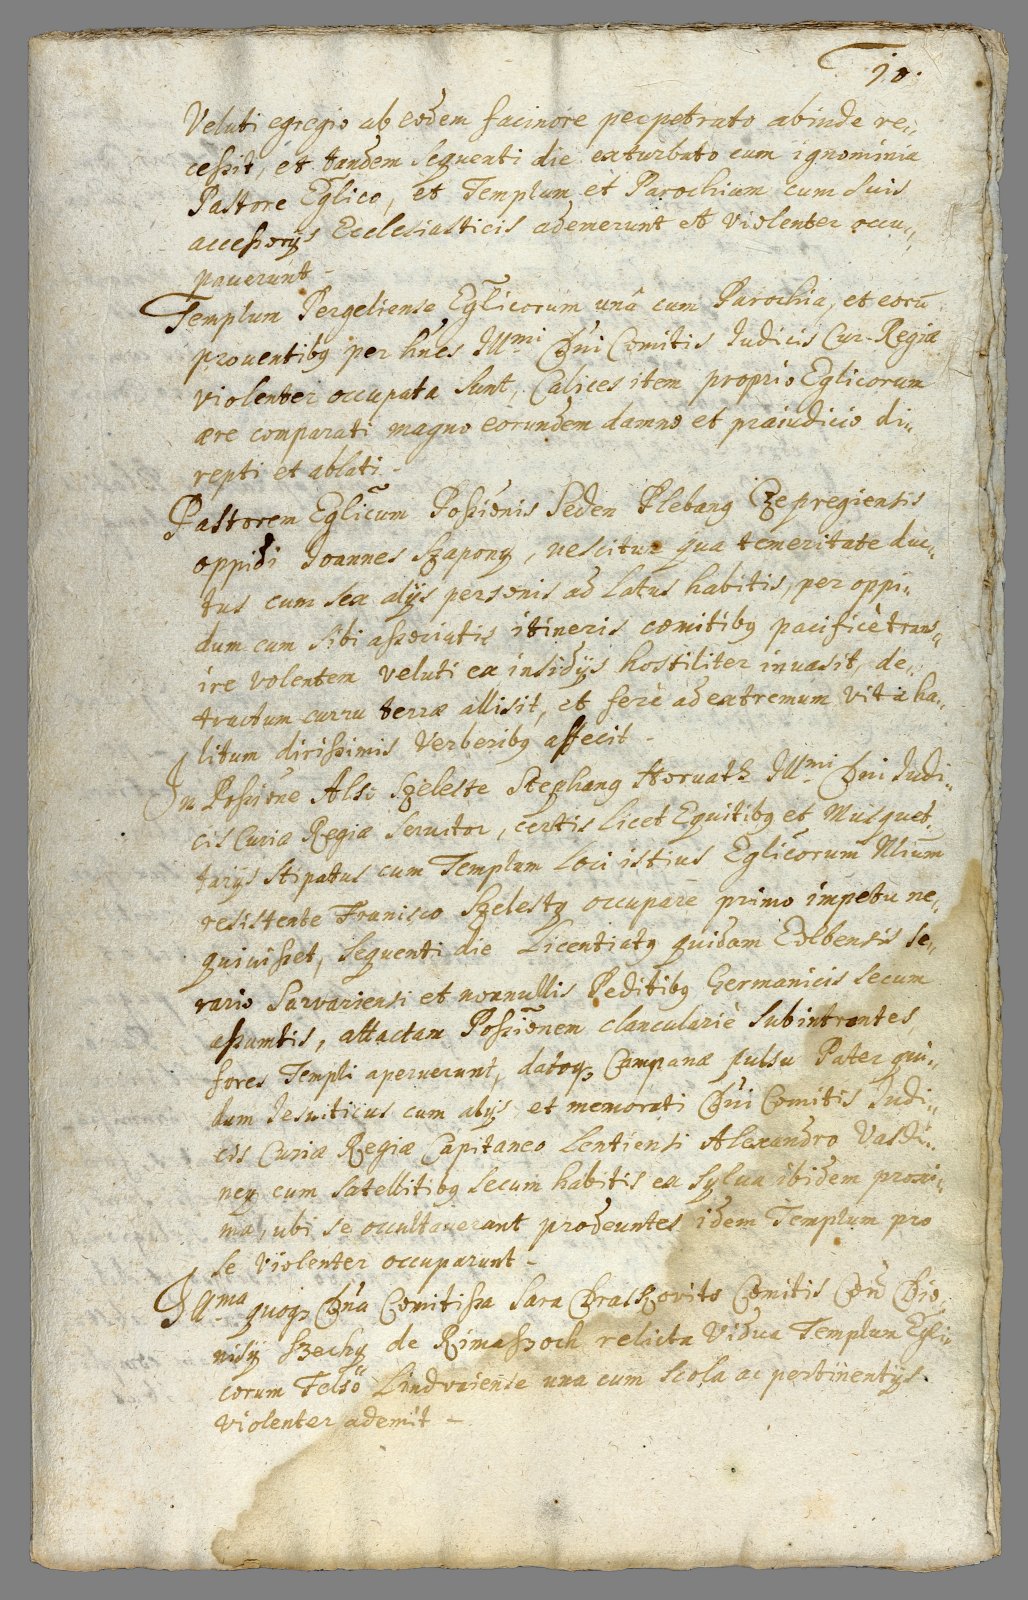 10.
Veluti egregio ab eodem facinore perpetrato abinde re„
cessit, et tandem sequenti die exturbato cum ignominia
Pastore Eglico, et Templum et Parochiam cum suis
accessorijs Ecclesiasticis ademerunt et violenter occu„
pauerunt –
Templum Pergeliense Eglicorum unâ cum Parochia, et eorū
prouentibq per hnes Illmi Dni Comitis Judicis Cur. Regiæ
violenter occupata sunt, Calices item proprio Eglicorum
ære comparati magno eorundem damno et præiudicio di„
repti et ablati –
Pastorem Eglicum Possionis Peden Plebang Czepregiensis
oppidi Joannes Szapony, nescitur qua temeritate duc„
tus cum sex alijs personis ad latus habitis, per oppi„
dum cum sibi associatis itineris comitibq pacificè trans„
ire volentem veluti ex insidijs hostiliter inuasit, de„
tractum curru terræ allisit, et ferè ad extremum vitæ ha„
litum dirissimis verberibq affecit –
In Possione Also Szeleste Stephang Horuath Illmi Dni Judi„
cis Curiæ Regiæ seruitor, certis licet Equitibq et Musquet„
tarijs stipatus cum Templum loci istius Eglicorum
resistente Francisco Szelesty occupare primo impetu ne„
quiuisset, sequenti die Licentiatq quidam Edlbensis se„
rario Sarvariensi et nonnullis Peditibq Germanicis secum
assumtis, attactam Possionem clancularie subintrantes
fores Templi aperuerunt, datoq Campanæ pulsu Pater qui„
dam Jesuiticus cum alijs et memorati Dni Comitis Judi„
cis Curiæ Regiæ Capitaneo Lentiensi Alexandro Vasdi„
ney cum satellitibq secum habitis ex sylua ibidem proxi„
ma, ubi se occultauerant prodeuntes idem Templum pro
se violenter occuparunt –
Illma quoq Dna Comitissa Sara Draskovits Comitis Dio„
nisij Szechy de Rimaszoch relicta Vidua Templum Egli„
corum Felső Lindvaiense una cum Scola ac pertinentijs
violenter ademit –